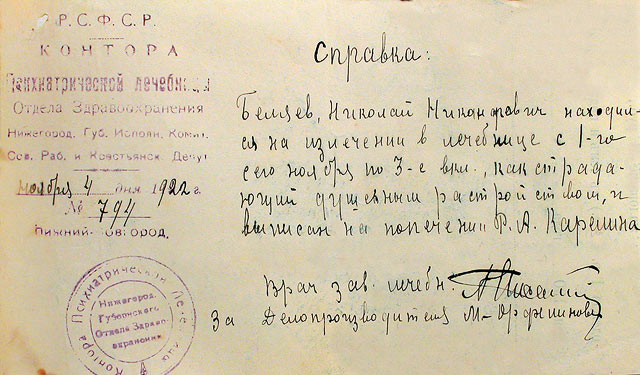 Р.С.Ф.С.Р.
КОНТОРА
Психиатрической лечебницы
Отдела Здравоохранения
Нижегород. Губ. Исполн. Комит.
Сов. Раб. и Крестьянск. Депут
ноября 4 дня 1922 г.
№ 794
Нижний-Новгород.
Справка:
Беляев, Николай Никанорович находил-
ся на излечении в лечебнице с 1-го
сего ноября по 3-е вкл., как страда-
ющий душевным растройством, и
выписан на попечении Р. А. Карелина
Врач зав. лечебн.
За Делопроизводителя
Контора Психиатрической Лечебницы
Нижегород.
Губонского
Отдела Здраво-
охранения